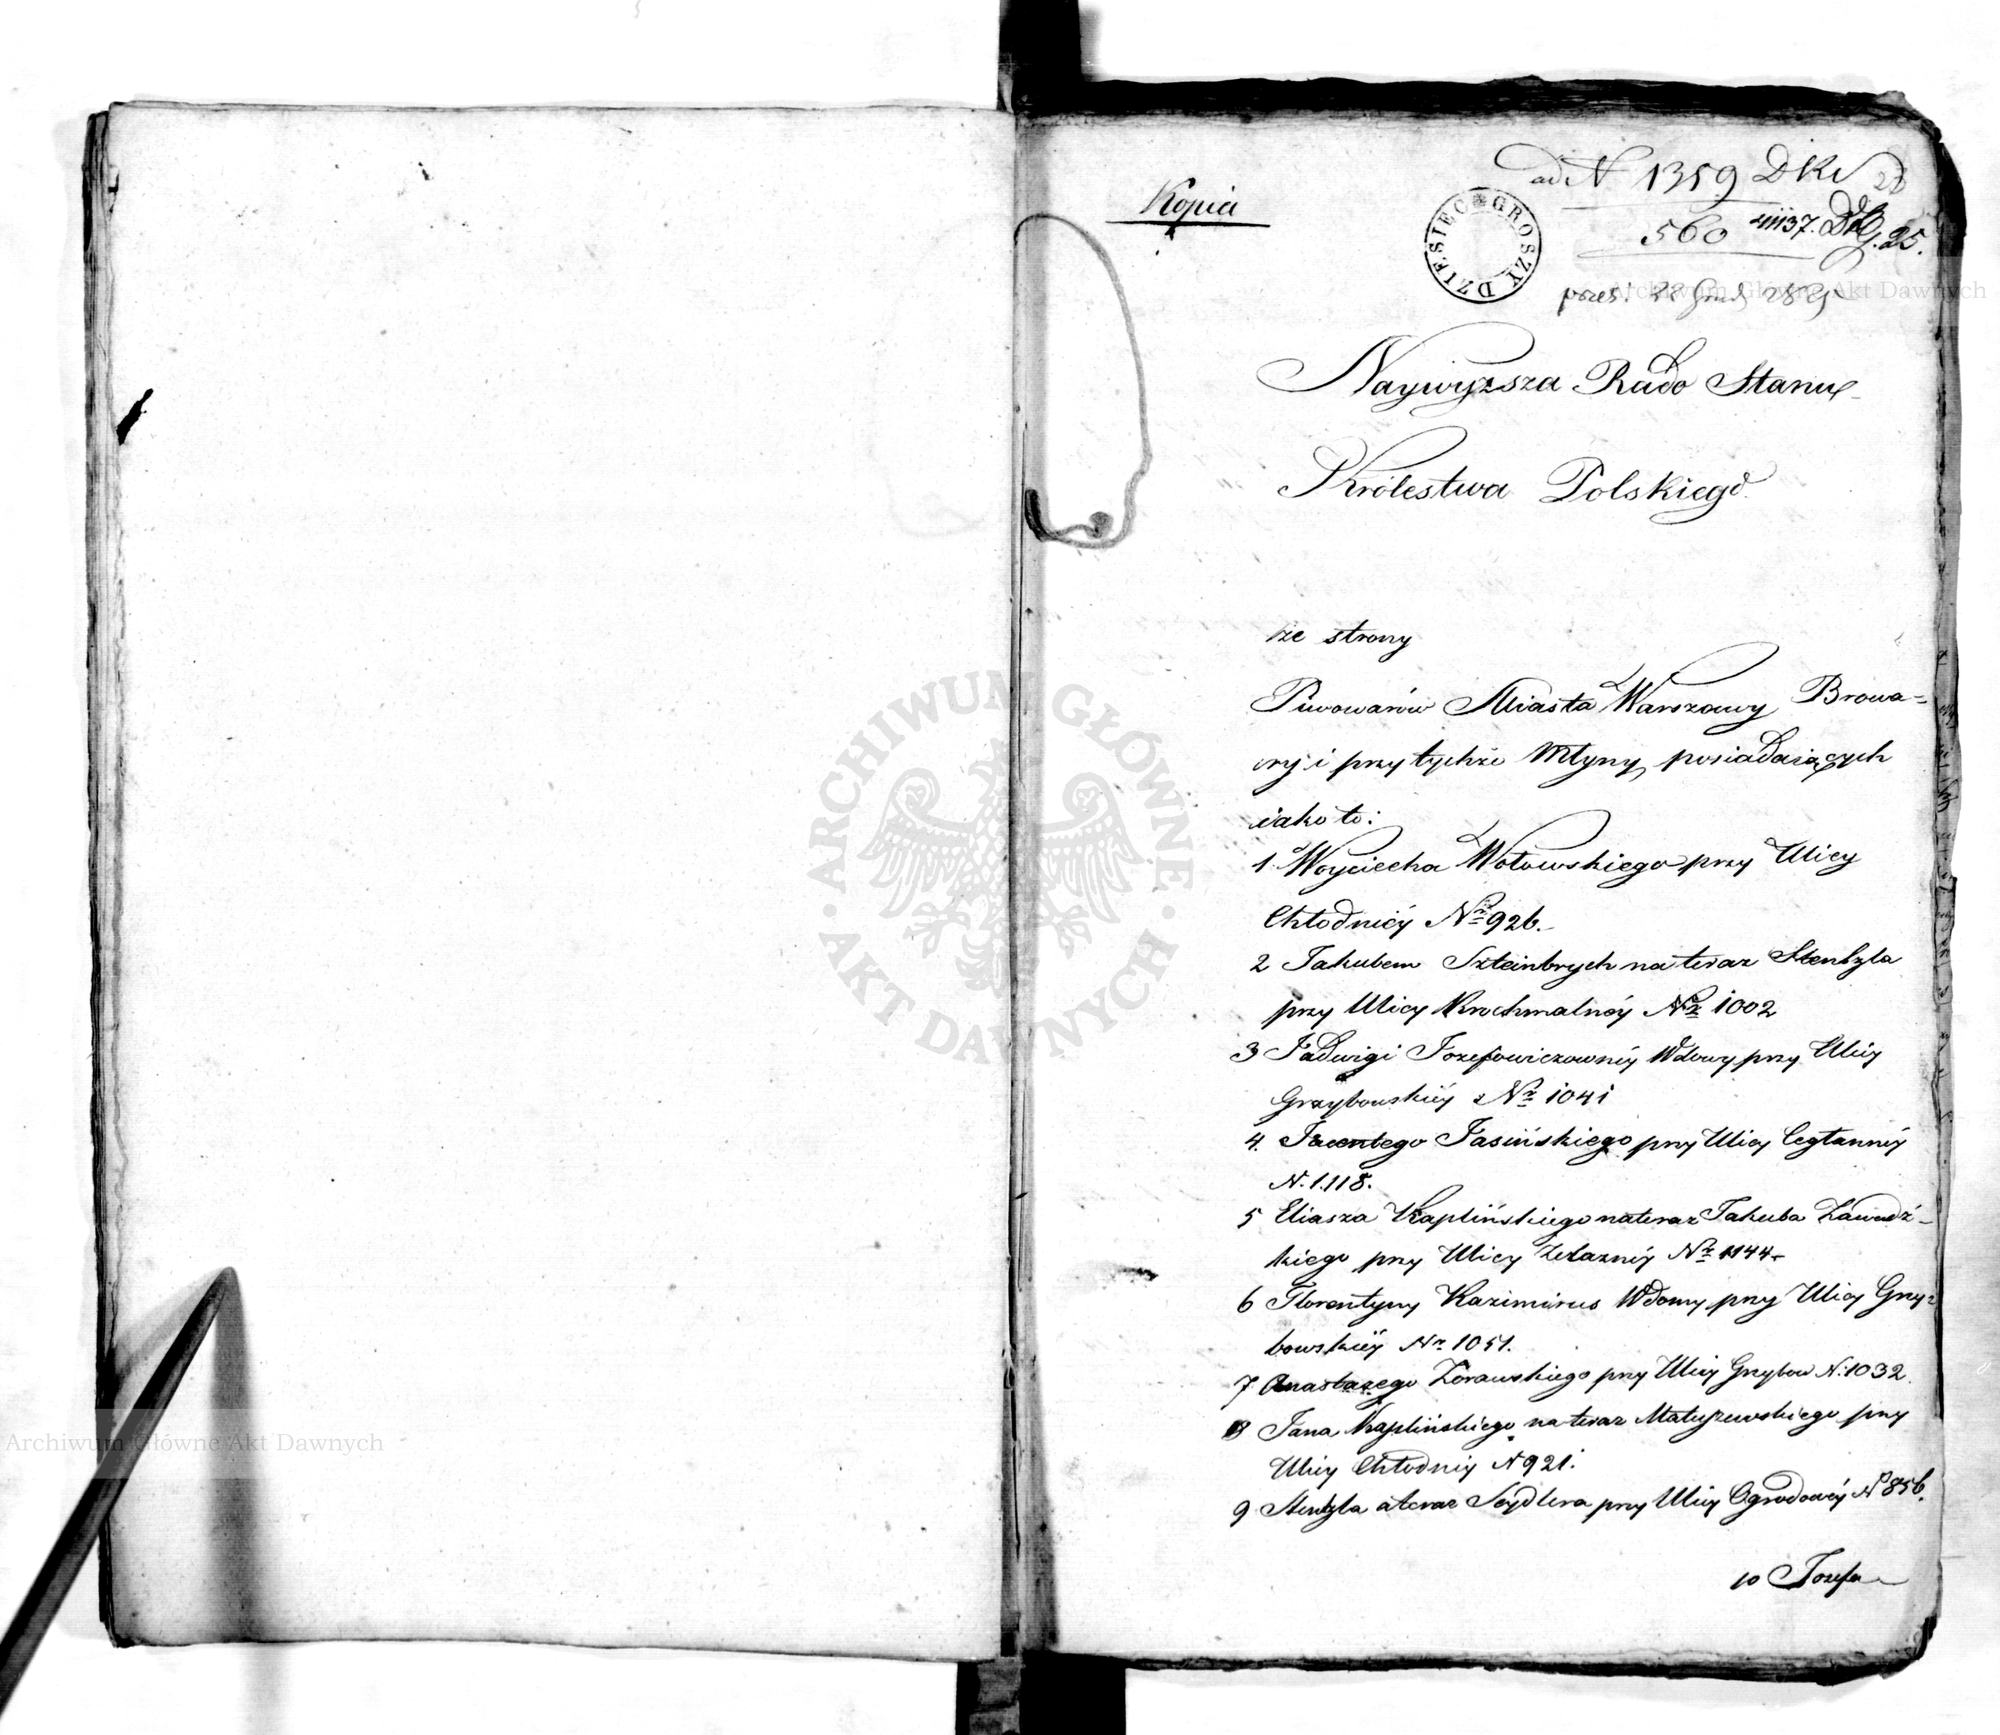 Kopia
ad N 1359 DKr
28
560 41137. 25.
DZIESIĘC GROSZY
Archiwum Główne Akt Dawnych
Naywyższa Rado Stanu
Królestwa Polskiego
że strony
Piwowarów Miasta Warszawy Browa=
ry i przy tychże Młyny, posiadaiących
iako to:
1. Woyciecha Wołowskiego przy Ulicy
Chłodnéy Nr 926.
2 Jakubem Szteinbrych na teraz Stentzla
przy Ulicy Krochmalnéy Nr 1002
3 Jadwigi Jozefowiczownéy Wdowy przy Ulicy
Grzybowskiéy Nr 1041
4. Jacentego Jasińskiego przy Ulicy Ceglannéy
N. 1.118.
5 Eliasza Kaplińskiego na teraz Jakuba Zawadz-
kiego przy Ulicy Żelaznéy Nr 1144
6 Florentyny Kazimirus Wdowy przy Ulicy Grzy=
bowskiéy Nr 1051.
7 Anastazego Żórawskiego przy Ulicy Grzybow N. 1032
8 Jana Kaplińskiego na teraz Matuszewskiego przy
Ulicy Chłodnéy N 921.
9 Stentzla a teraz Seydlera przy Ulicy Ogrodowéy N 856.
10 Jozefa
ARCHIWUM GŁÓWNE
AKT DAWNYCH
Archiwum Główne Akt Dawnych